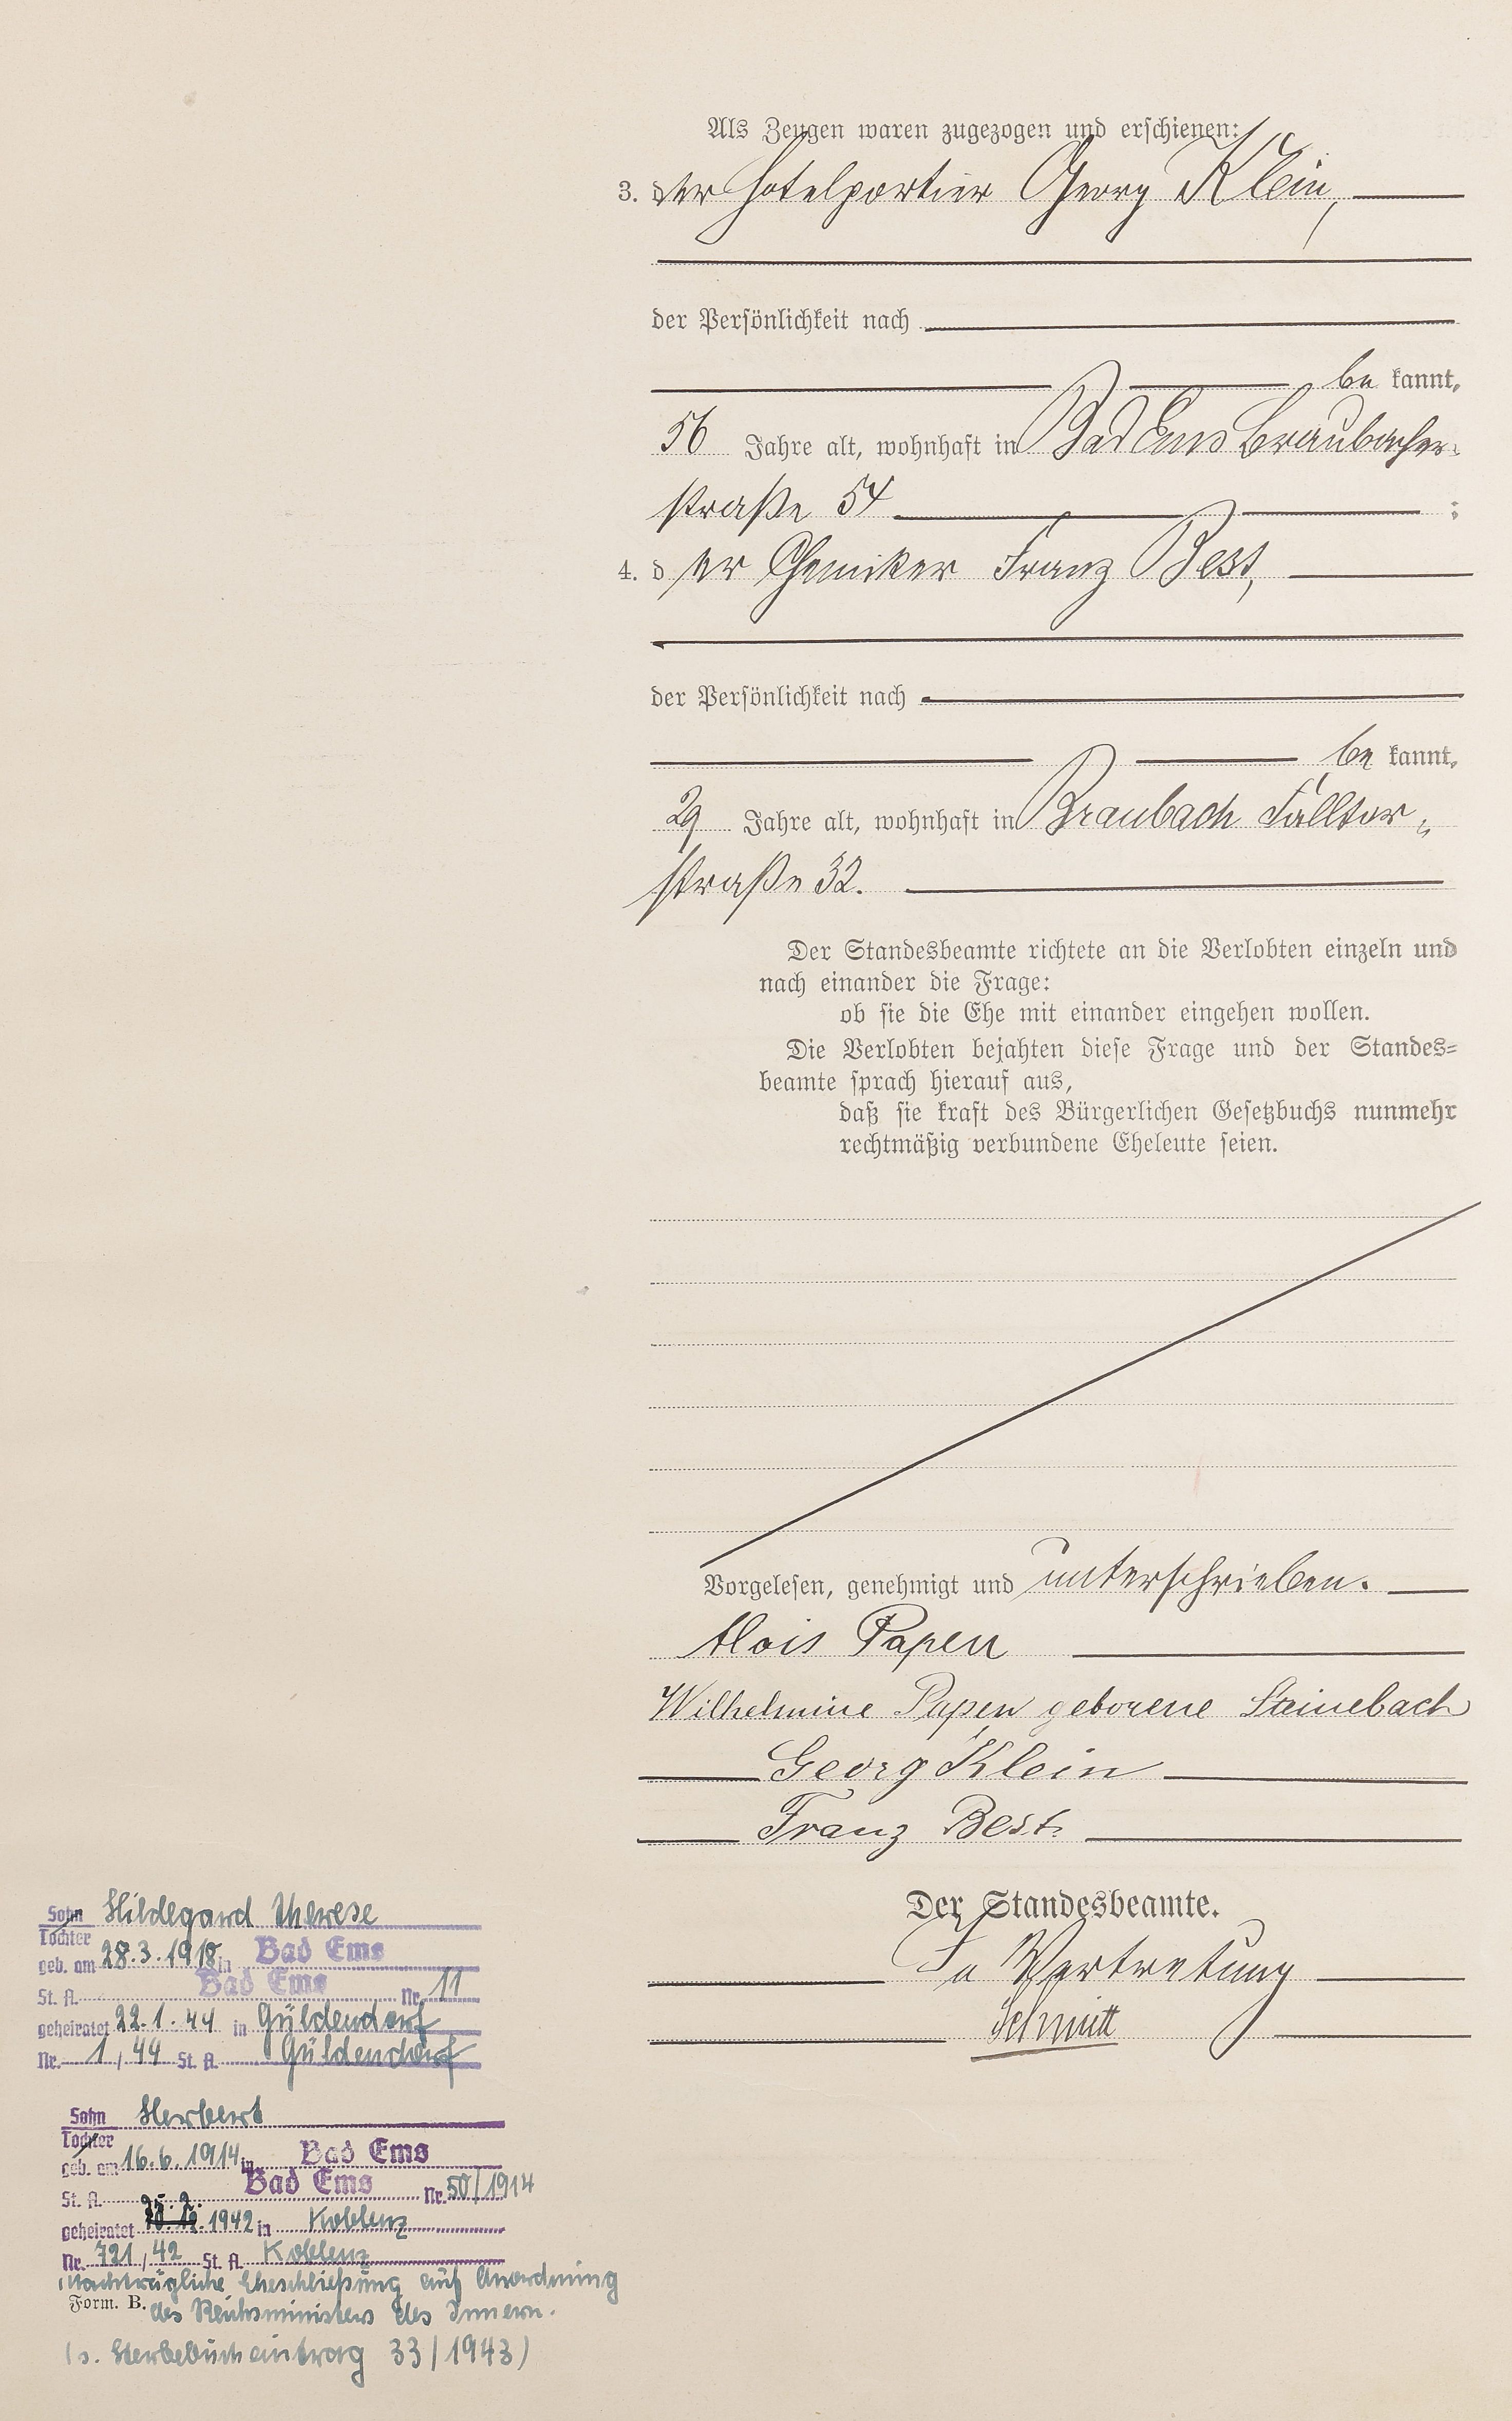 Als Zeugen waren zugezogen und erschienen:
3. der Hotelportier Georg Klein,
der Persönlichkeit nach
be kannt,
56 Jahre alt, wohnhaft in Bad Ems Braubacher-
straße 54 ;
4. d er Chemiker Franz Best,
der Persönlichkeit nach
be kannt,
29 Jahre alt, wohnhaft in Braubach Falltor-
straße 32.
Der Standesbeamte richtete an die Verlobten einzeln und
nach einander die Frage:
ob sie die Ehe mit einander eingehen wollen.
Die Verlobten bejahten diese Frage und der Standes=
beamte sprach hierauf aus,
daß sie kraft des Bürgerlichen Gesetzbuchs nunmehr
rechtmäßig verbundene Eheleute seien.
Vorgelesen, genehmigt und unterschrieben.
Alois Papen
Wilhelmine Papen geborene Steinebach
Georg Klein
Franz Best.
Der Standesbeamte.
In Vertretung
Schmitt
Sohn Hildegard Therese
Tochter
geb. am 28.3.1918 in Bad Ems
St. A. Bad Ems Nr. 11
geheiratet 22.1.44 in Güldendorf
Nr. 1/44 St. A. Güldendorf
Sohn Herbert
Tochter
geb. am 16.6.1914 in Bad Ems
St. A. Bad Ems Nr. 50/1914
geheiratet 1942 in Koblenz
Nr. 721/42 St. A. Koblenz
Nachträgliche Eheschließung auf Anordnung
Form. B. des Reichsministers des Innern.
(s. Sterbebucheintrag 33/1943)